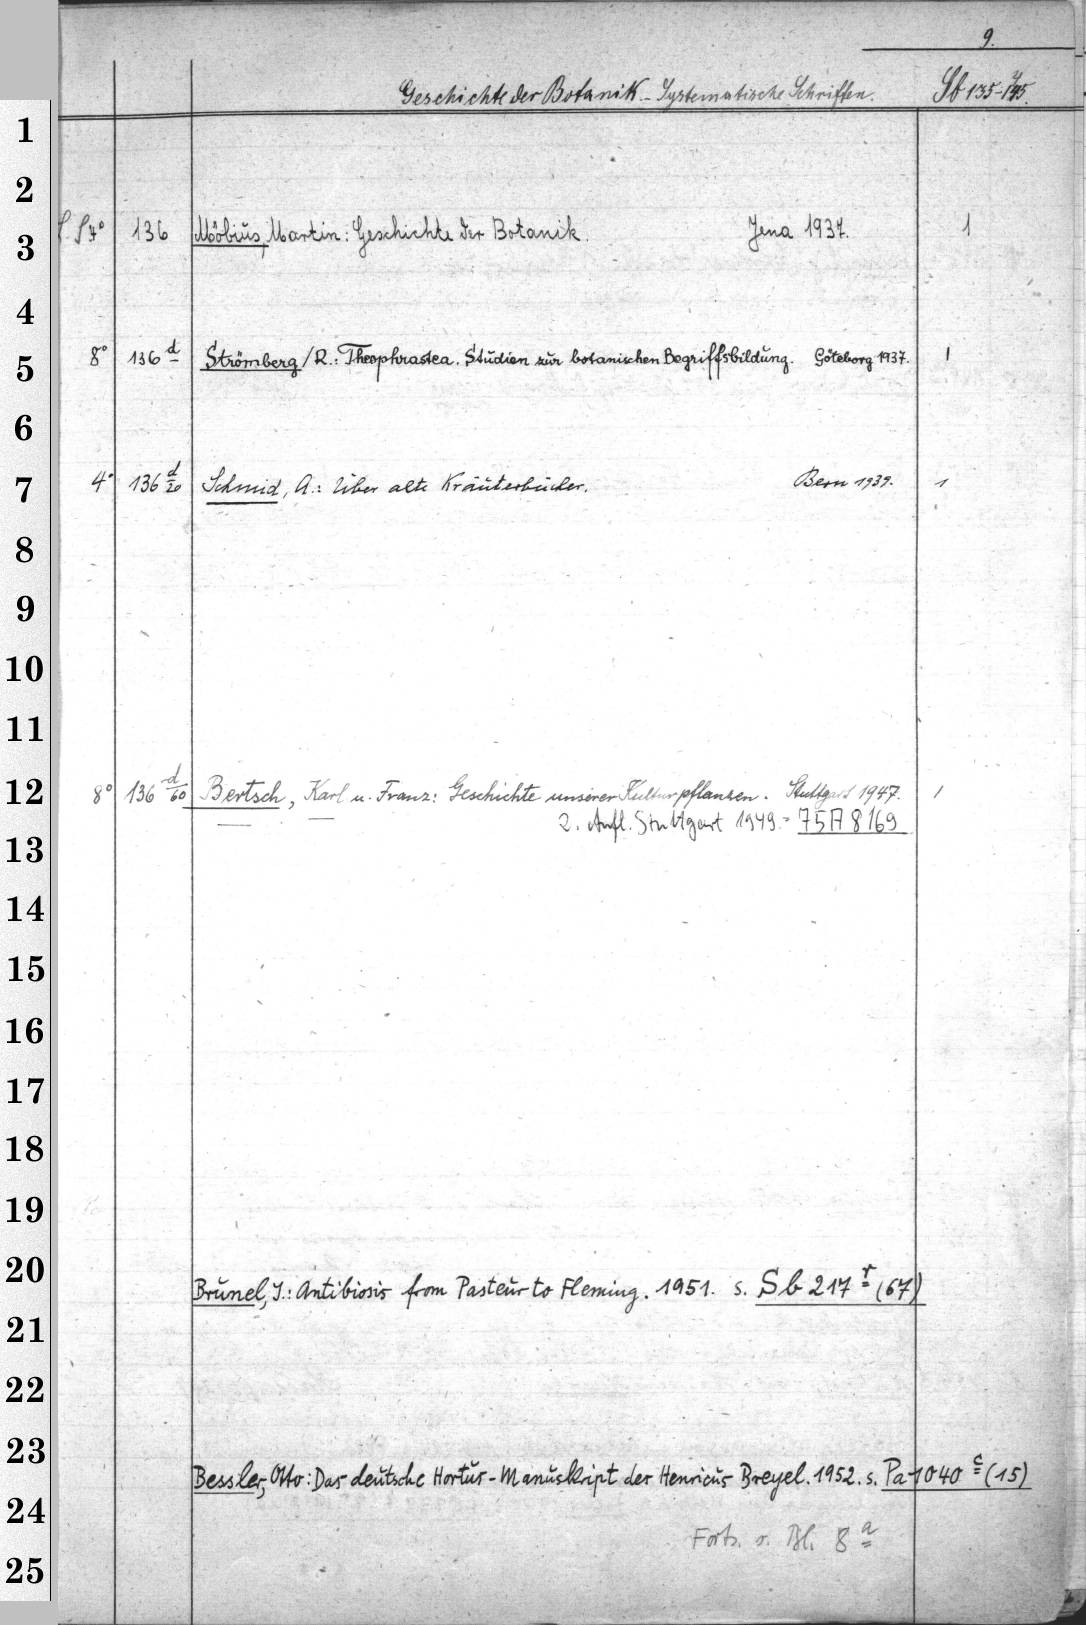 9.
Geschichte der Botanik - Systematische Schriften. Sb 135-145.
4° 136 Möbius, Martin: Geschichte der Botanik. Jena 1937. 1
8° 136 d Strömberg / R.: Theophrastea. Studien zur botanischen Begriffsbildung. Göteborg 1937. 1
4° 136 d/20 Schmid, A.: Über alte Kräuterbücher. Bern 1939. 1
8° 136 d/60 Bertsch, Karl u. Franz: Geschichte unserer Kulturpflanzen. Stuttgart 1947. 1
2. Aufl. Stuttgart 1949.= 75 A 8169
Brunel, J.: Antibiosis from Pasteur to Fleming. 1951. s. Sb 217 r (67)
Bessler, Otto: Das deutsche Hortus-Manuskript der Henricus Breyel. 1952. s. Pa 1040 c (15)
Forts. s. Bl. 8 a
1
2
3
4
5
6
7
8
9
10
11
12
13
14
15
16
17
18
19
20
21
22
23
24
25